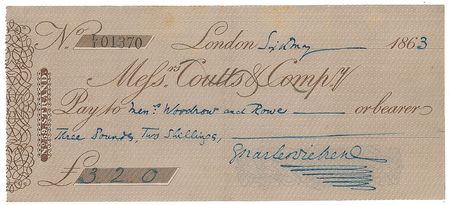 No. L/I 01370
London Sixth May 1863
Messrs. Coutts & Compy.
Pay to Messrs. Woodrow and Rowe or bearer
Three Pounds, Two Shillings,
£3.2.0 Charles Dickens